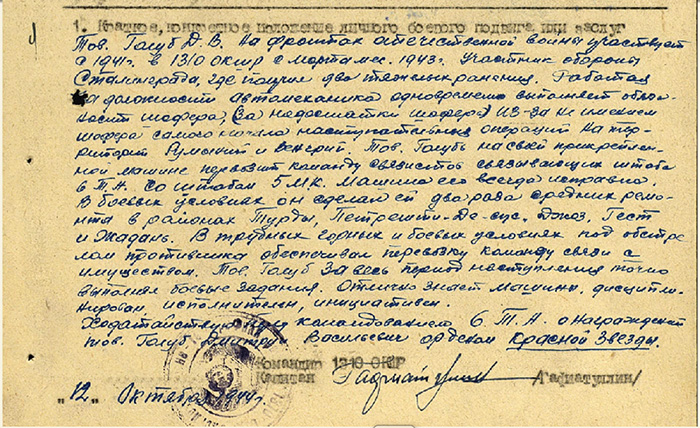 1. Краткое, конкретное изложение личного боевого подвига или заслуг
Тов. Голуб Д.В. На фронтах отечественной войны участвует
с 1941г. в 1310 ОКШР с марта мес. 1943г. Участник обороны
Сталинграда, где получил два тяжелых ранения. Работая
на должности автомеханика одновременно выполняет обязан
ности шофера, (за недостатки шоферов) из-за не имением
шофера самого начала наступательных операций на тер-
ритории Румынии и Венгрии. Тов. Голубь на своей прикреплен-
ной машине перевозит команду связистов связывающих штаба
6 Т.А. со штабам 5 МК. Машина его всегда исправна.
В боевых условиях он сделал ей два раза средних ремон-
та в районах Турды, Петрешти-Де-сус, Гест
и Жадань. В трудных горных и боевых условиях под обстре
лом противника обеспечивал перевозку команду связи с
имуществом. Тов. Голуб за весь период наступления точно
выполнял боевые задания. Отлично знает машину, дисципли-
нирован исполнителен, инициативен.
Ходатайствую командованием 6 Т.А. о награждении
тов. Голуб Дмитрия Васильевич орденом Красной Звезды.
Командир 1310 ОКШР
Капитан /Гафиатуллин/
"12" Октября 1944г.